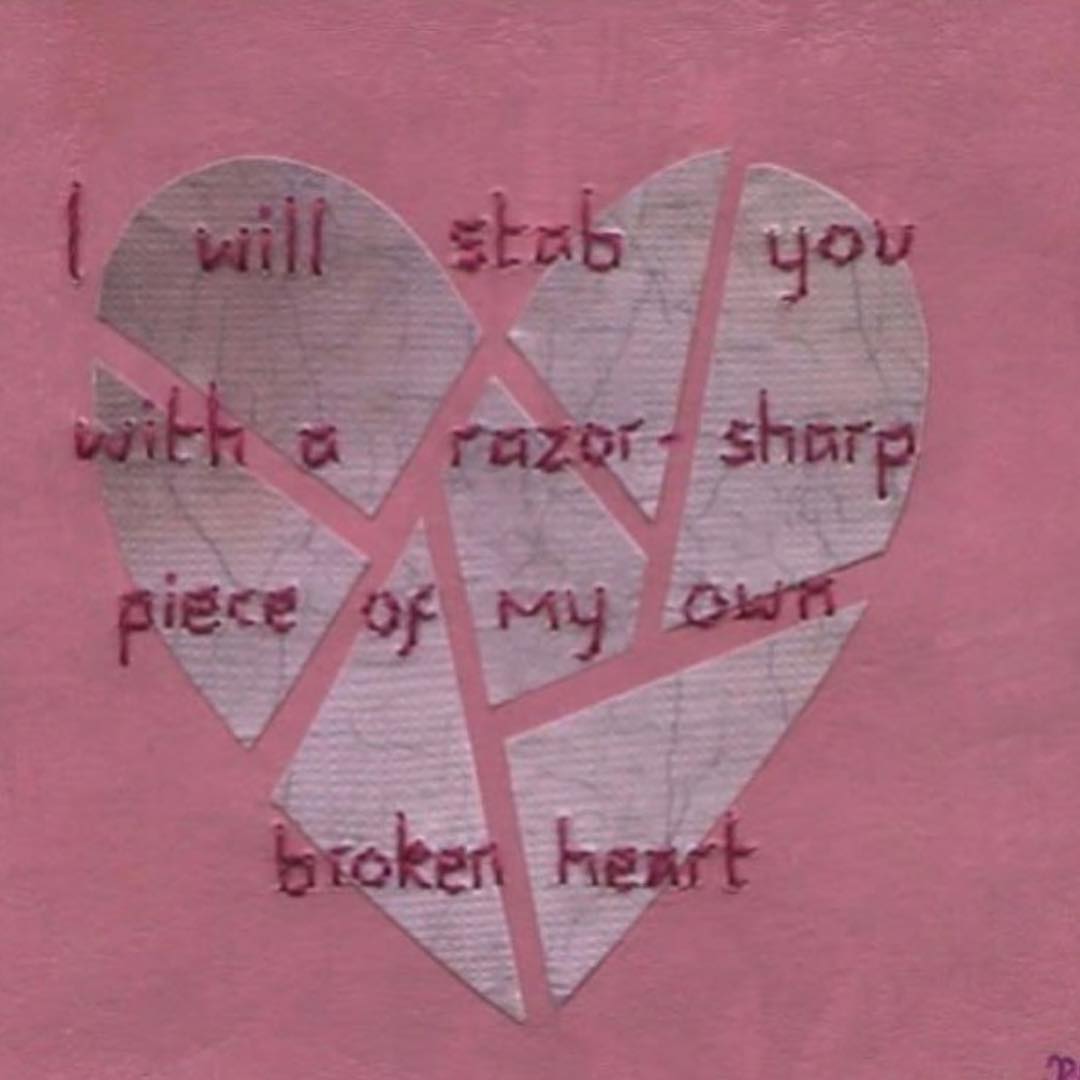 I will stab you
with a razor-sharp
piece of my own
broken heart